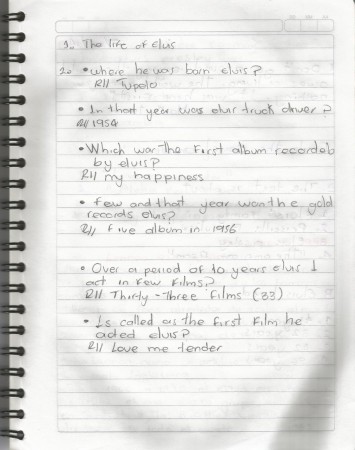 1. The life of Elvis
2. • where he was born elvis?
R// Tupelo
• In that year was elvis truck driver?
R// 1954
• Which was the First album recorded
by elvis?
R// my happiness
• few and that year won the gold
records elvis?
R// five album in 1956
• Over a period of 10 years elvis
act in few films?
R// Thirty-three films (33)
• Is called as the first film he
acted elvis?
R// Love me tender